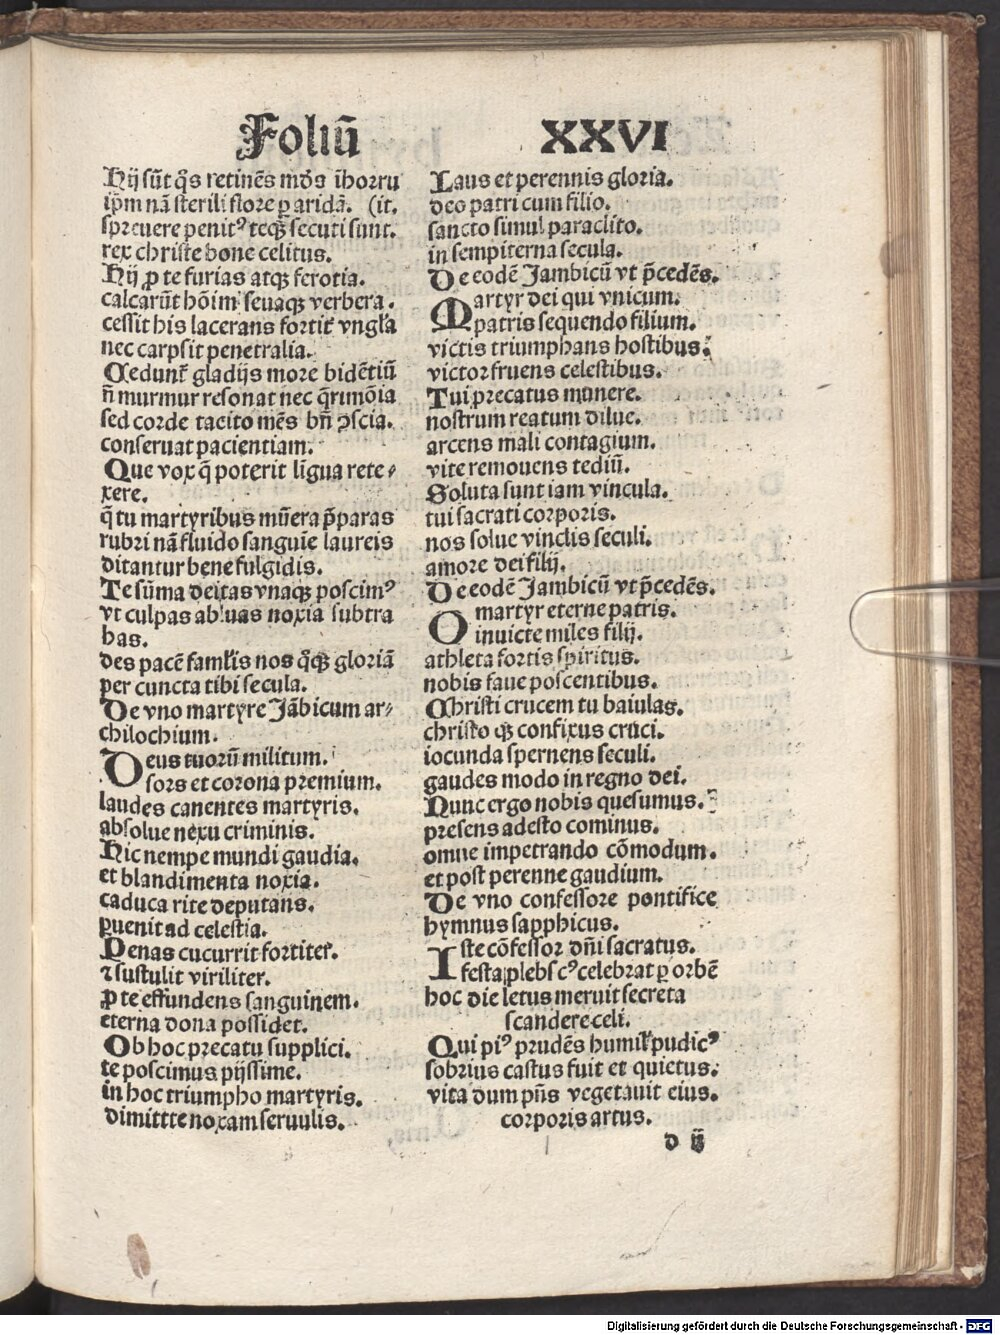 Foliū XXVI
Hij sūt q̄s retinēs mūdꝰ īhorru
ip̄m nā sterili flore ꝑ aridā. (it.
spreuere penitꝰ teqꝫ secuti sunt.
rex christe bone celitus.
Hij ꝓ te furias atqꝫ ferotia.
calcarūt hōim seuaqꝫ verbera.
cessit his lacerans fortiť vngľa
nec carpsit penetralia.
Cedunť gladijs more bidētiū
n̄ murmur resonat nec q̄rimōia
sed corde tacito mēs bn̄ ↄscia.
conseruat pacientiam.
Que vox q̄ poterit līgua rete⸗
xere.
q̄ tu martyribus mūera p̄paras
rubri nā fluido sanguīe laureis
ditantur bene fulgidis.
Te sūma deitas vnaqꝫ poscimꝰ
vt culpas abluas noxia subtra
has.
des pacē famľis nos q̊qꝫ gloriā
per cuncta tibi secula.
De vno martyre Jābicum ar⸗
chilochium.
Deus tuorū militum.
sors et corona premium.
laudes canentes martyris.
absolue nexu criminis.
Hic nempe mundi gaudia.
et blandimenta noxia.
caduca rite deputans.
ꝑuenit ad celestia.
Penas cucurrit fortiteř.
⁊ sustulit viriliter.
ꝓ te effundens sanguinem.
eterna dona possidet.
Ob hoc precatu supplici.
te poscimus pijssime.
in hoc triumpho martyris.
dimittte noxam seruulis.
Laus et perennis gloria.
deo patri cum filio.
sancto simul paraclito.
in sempiterna secula.
De eodē Jambicū vt p̄cedēs.
Martyr dei qui vnicum.
patris sequendo filium.
victis triumphans hostibus.
victor fruens celestibus.
Tui precatus munere.
nostrum reatum dilue.
arcens mali contagium.
vite remouens tediū.
Soluta sunt iam vincula.
tui sacrati corporis.
nos solue vinclis seculi.
amore dei filij.
De eodē Jambicū vt p̄cedēs.
O martyr eterne patris.
inuicte miles filij.
athleta fortis spiritus.
nobis faue poscentibus.
Christi crucem tu baiulas.
christo qꝫ confixus cruci.
iocunda spernens seculi.
gaudes modo in regno dei.
Nunc ergo nobis quesumus.
presens adesto cominus.
omne impetrando cōmodum.
et post perenne gaudium.
De vno confessore pontifice
hymnus sapphicus.
Iste cōfessor dn̄i sacratus.
festa plebs cꝰ celebrat ꝑ orbē
hoc die letus meruit secreta
scandere celi.
Qui piꝰ prudēs humiľ pudicꝰ
sobrius castus fuit et quietus.
vita dum pn̄s vegetauit eius.
corporis artus.
d ij
Digitalisierung gefördert durch die Deutsche Forschungsgemeinschaft - DFG